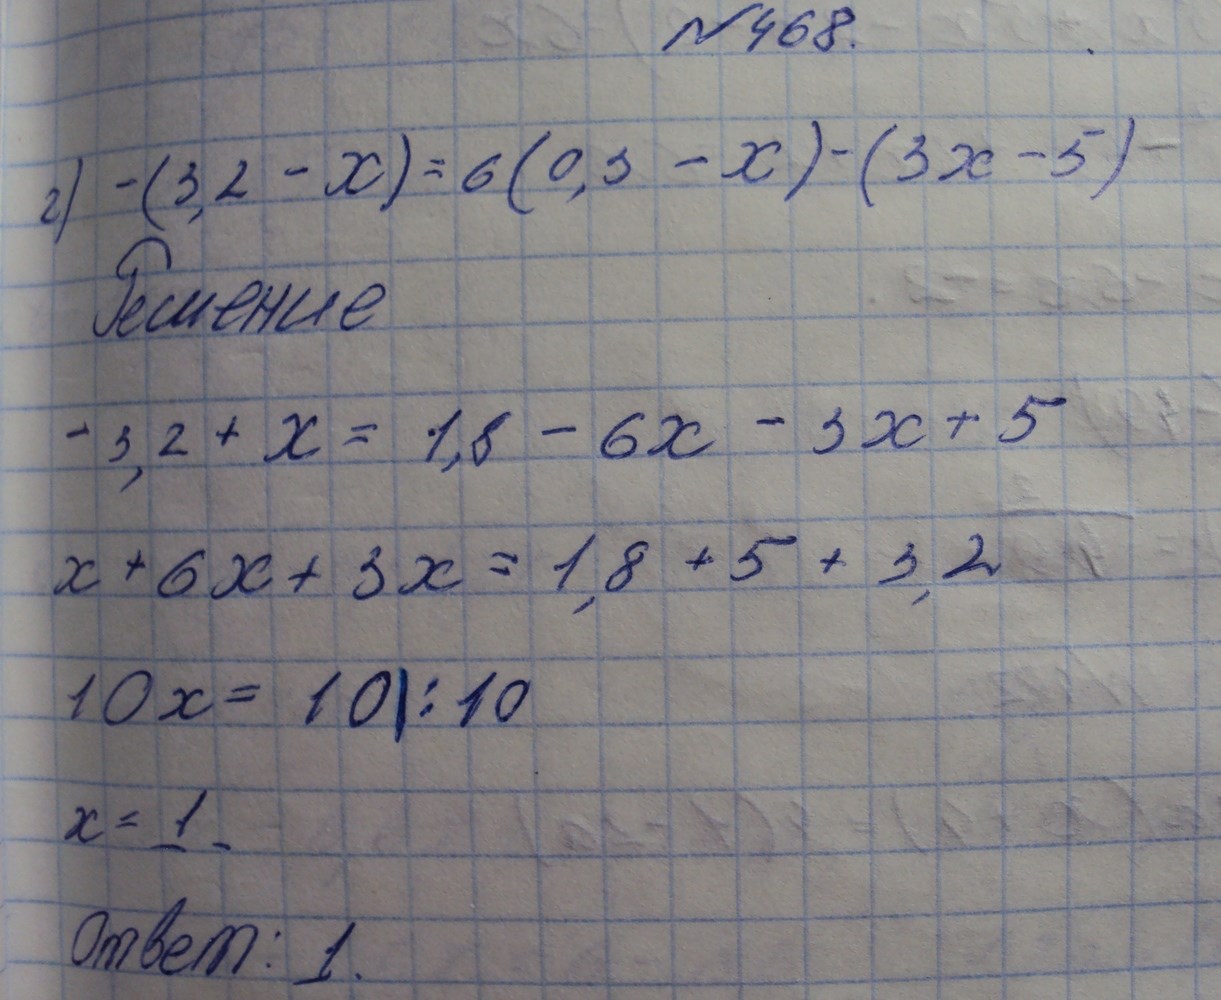 №468.
г) -(3,2 - x) = 6(0,3 - x) - (3x - 5) -
Решение
-3,2 + x = 1,8 - 6x - 3x + 5
x + 6x + 3x = 1,8 + 5 + 3,2
10x = 10|:10
x = 1.
Ответ: 1.